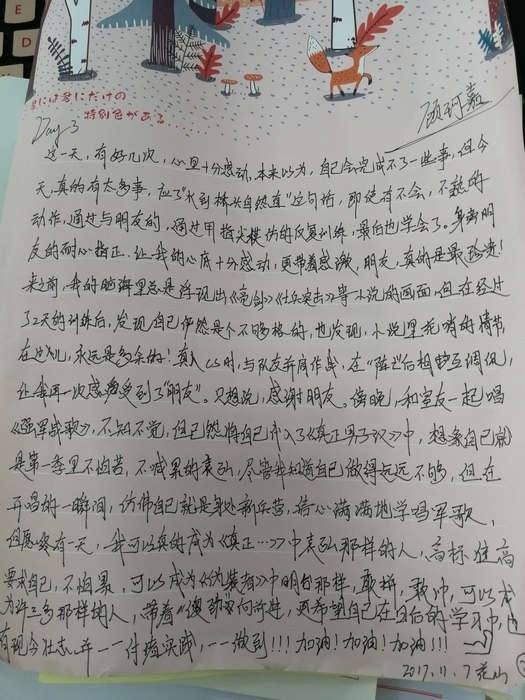 君には君にだけの
特別色がある
顾珂嘉
Day 3
这一天，有好几次，心里十分感动。本来以为，自己会完成不了一些事，但今
天，真的有太多事，应了“船到桥头自然直”这句话，即使有不会，不熟的
动作，通过与朋友的，通过用指尖模仿的反复训练，最后也学会了。身旁朋
友的耐心指正，让我的心底十分感动，更带着感激，朋友，真的是最珍贵！
来之前，我的脑海里总是浮现出《亮剑》《士兵突击》等小说的画面，但在经过
了2天的训练后，发现自己俨然是个不够格的，也发现，小说里花哨的情节，
在这儿，永远是多余的！真人CS时，与队友并肩作战，在“阵亡”后相互调侃，
让我再一次感受到了“朋友”。只想说，感谢朋友。傍晚，和室友一起唱
《强军战歌》，不知不觉，自己然将自己带入了《真正男子汉》中，想象自己就
是第一季里不怕苦，不喊累的袁弘，尽管我知道自己做得远远不够，但在
开唱的一瞬间，仿佛自己就是身处新兵营，信心满满地学唱军歌，
但愿终有一天，我可以真的成为《真正…》中袁弘那样的人，高标准高
要求自己，不怕累，可以成为《伪装者》中明台那样，敢拼，敢冲，可以成
为许三多那样的人，带着 向前进，更希望自己在日后的学习中，也
有现今壮志，并一一付诸实践，一一做到！！！加油！加油！加油！！！
2017.11.7